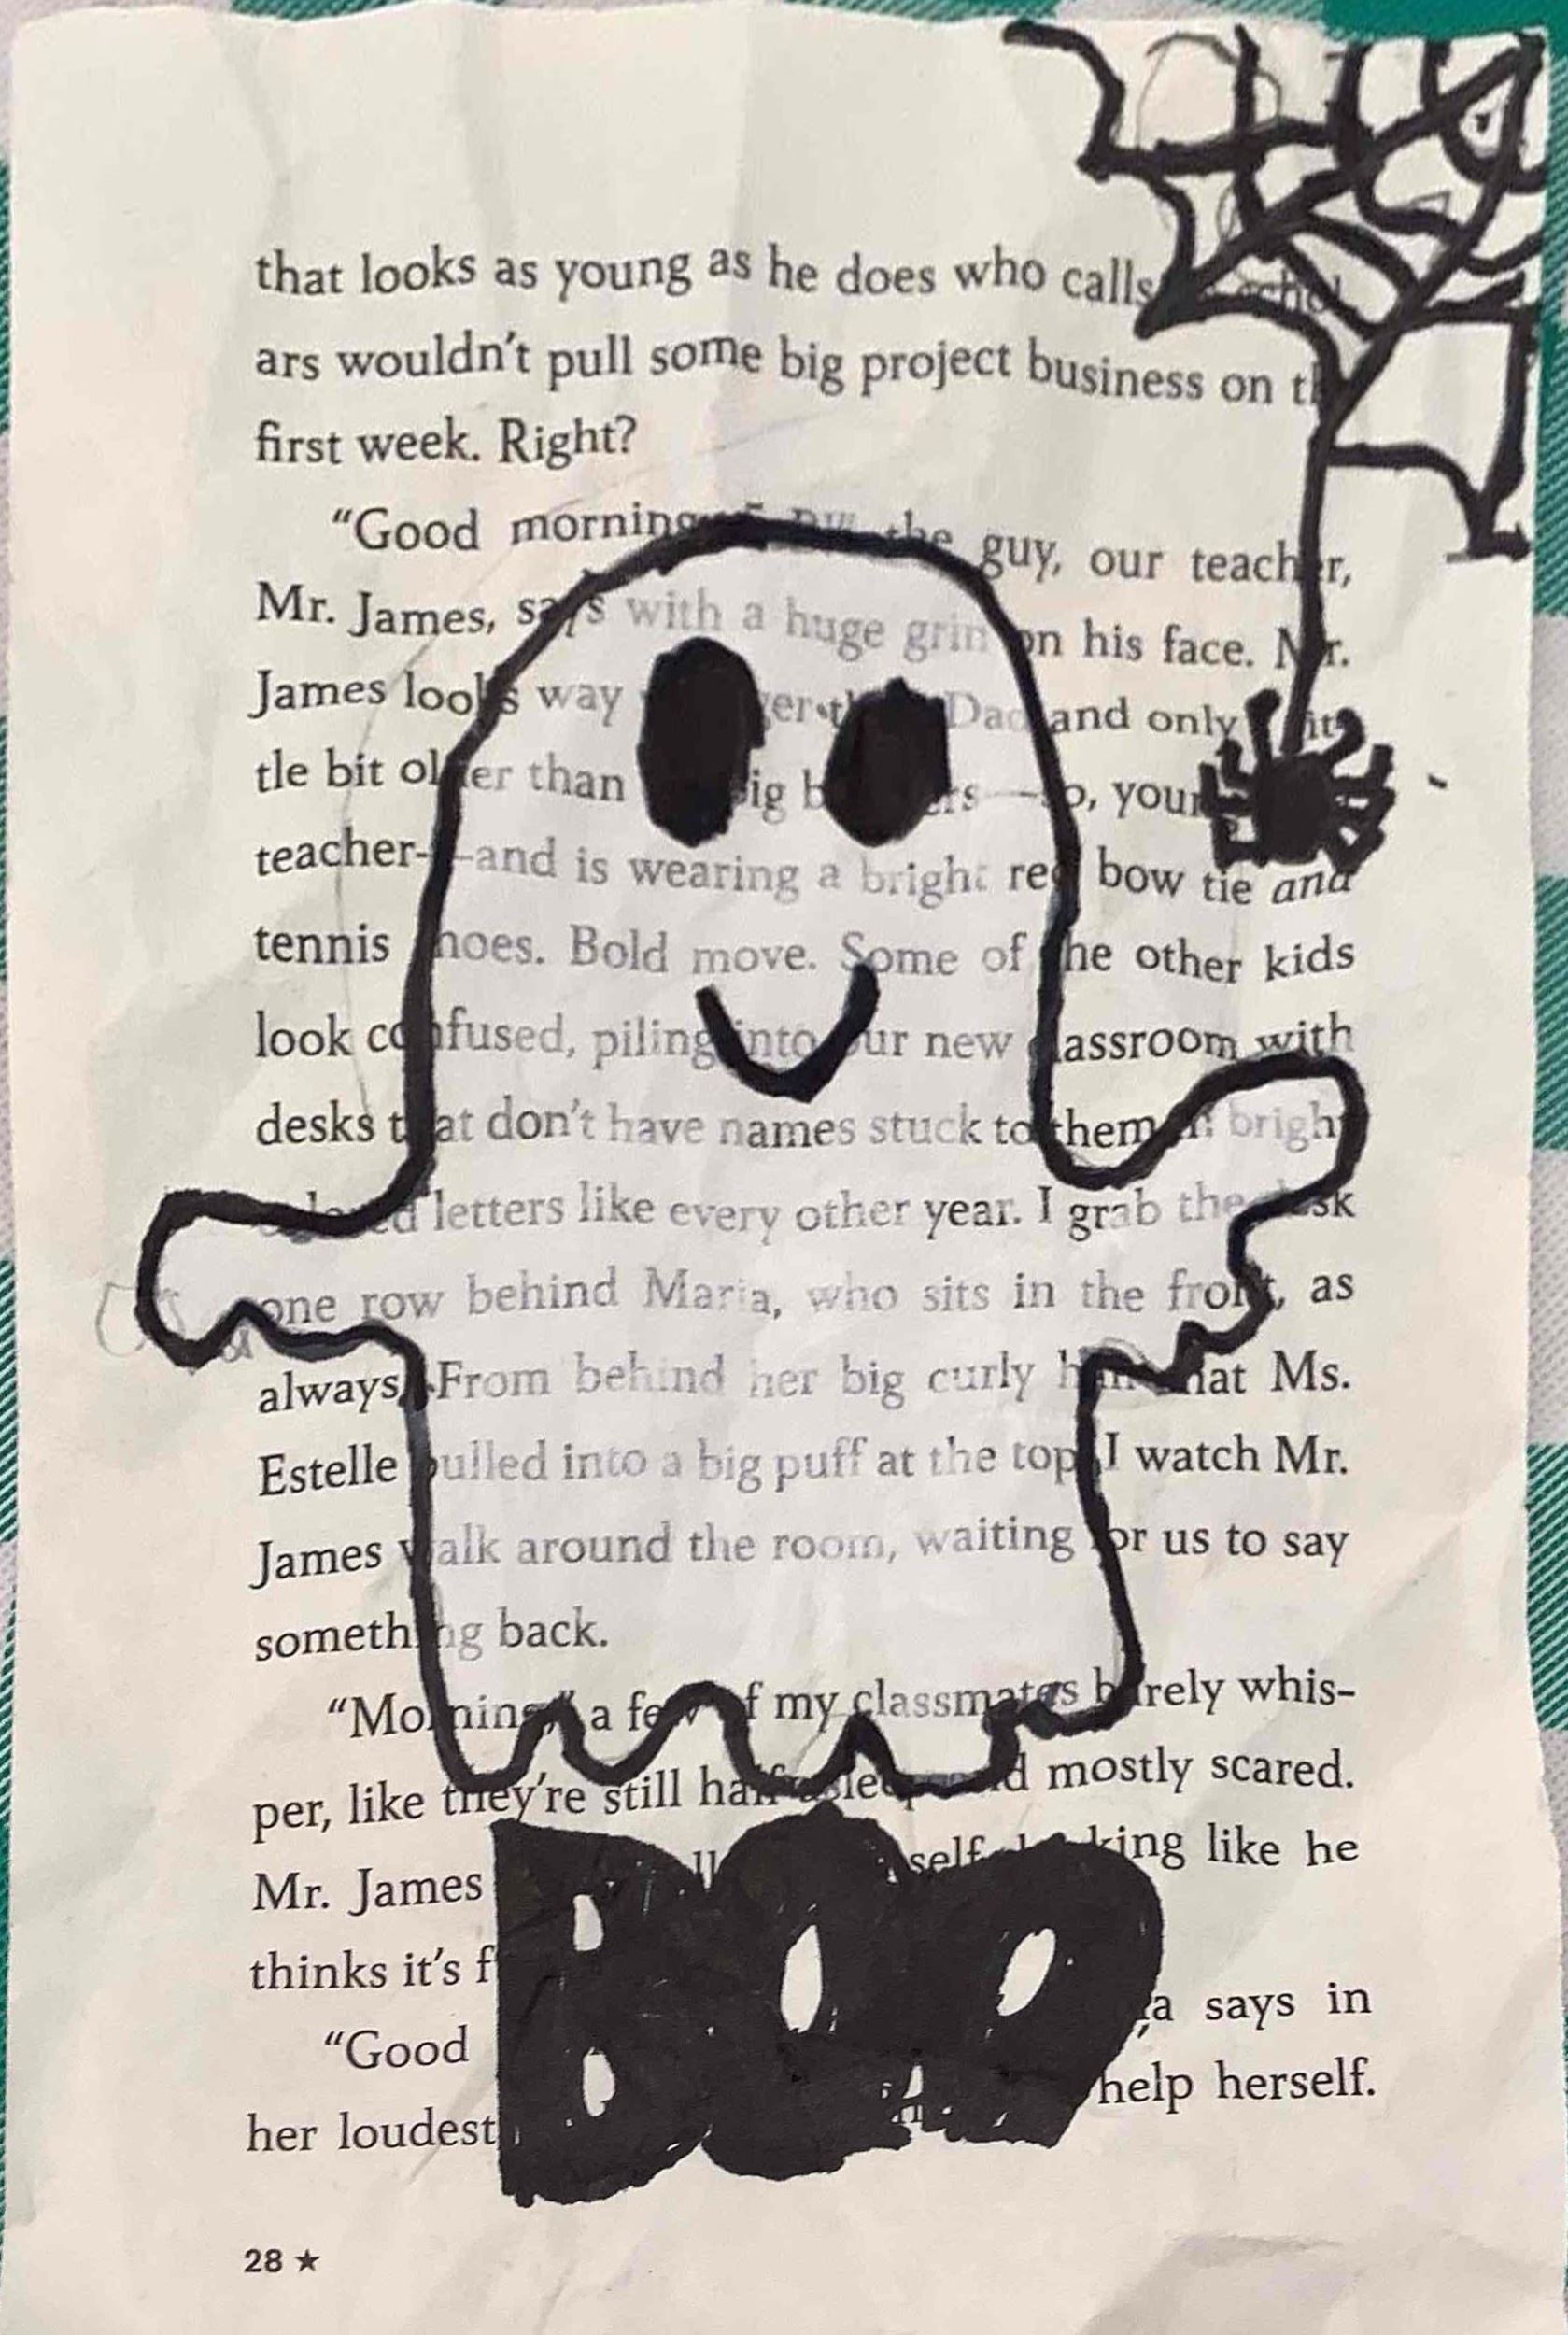 that looks as young as he does who calls
ars wouldn't pull some big project business on
first week. Right?
“Good morning the guy, our teacher,
Mr. James, says with a huge grin on his face. Mr.
James looks way Dad and only
tle bit older than big
teacher—and is wearing a bright red bow tie and
tennis shoes. Bold move. Some of the other kids
look confused, piling into our new classroom with
desks that don't have names stuck to them in bright
colored letters like every other year. I grab the desk
one row behind Maria, who sits in the front, as
always. From behind her big curly hair that Ms.
Estelle pulled into a big puff at the top, I watch Mr.
James walk around the room, waiting for us to say
something back.
“Morning,” a few of my classmates barely whis-
per, like they're still half asleep and mostly scared.
Mr. James like he
thinks it's
“Good says in
her loudest help herself.
BOO
28 ★